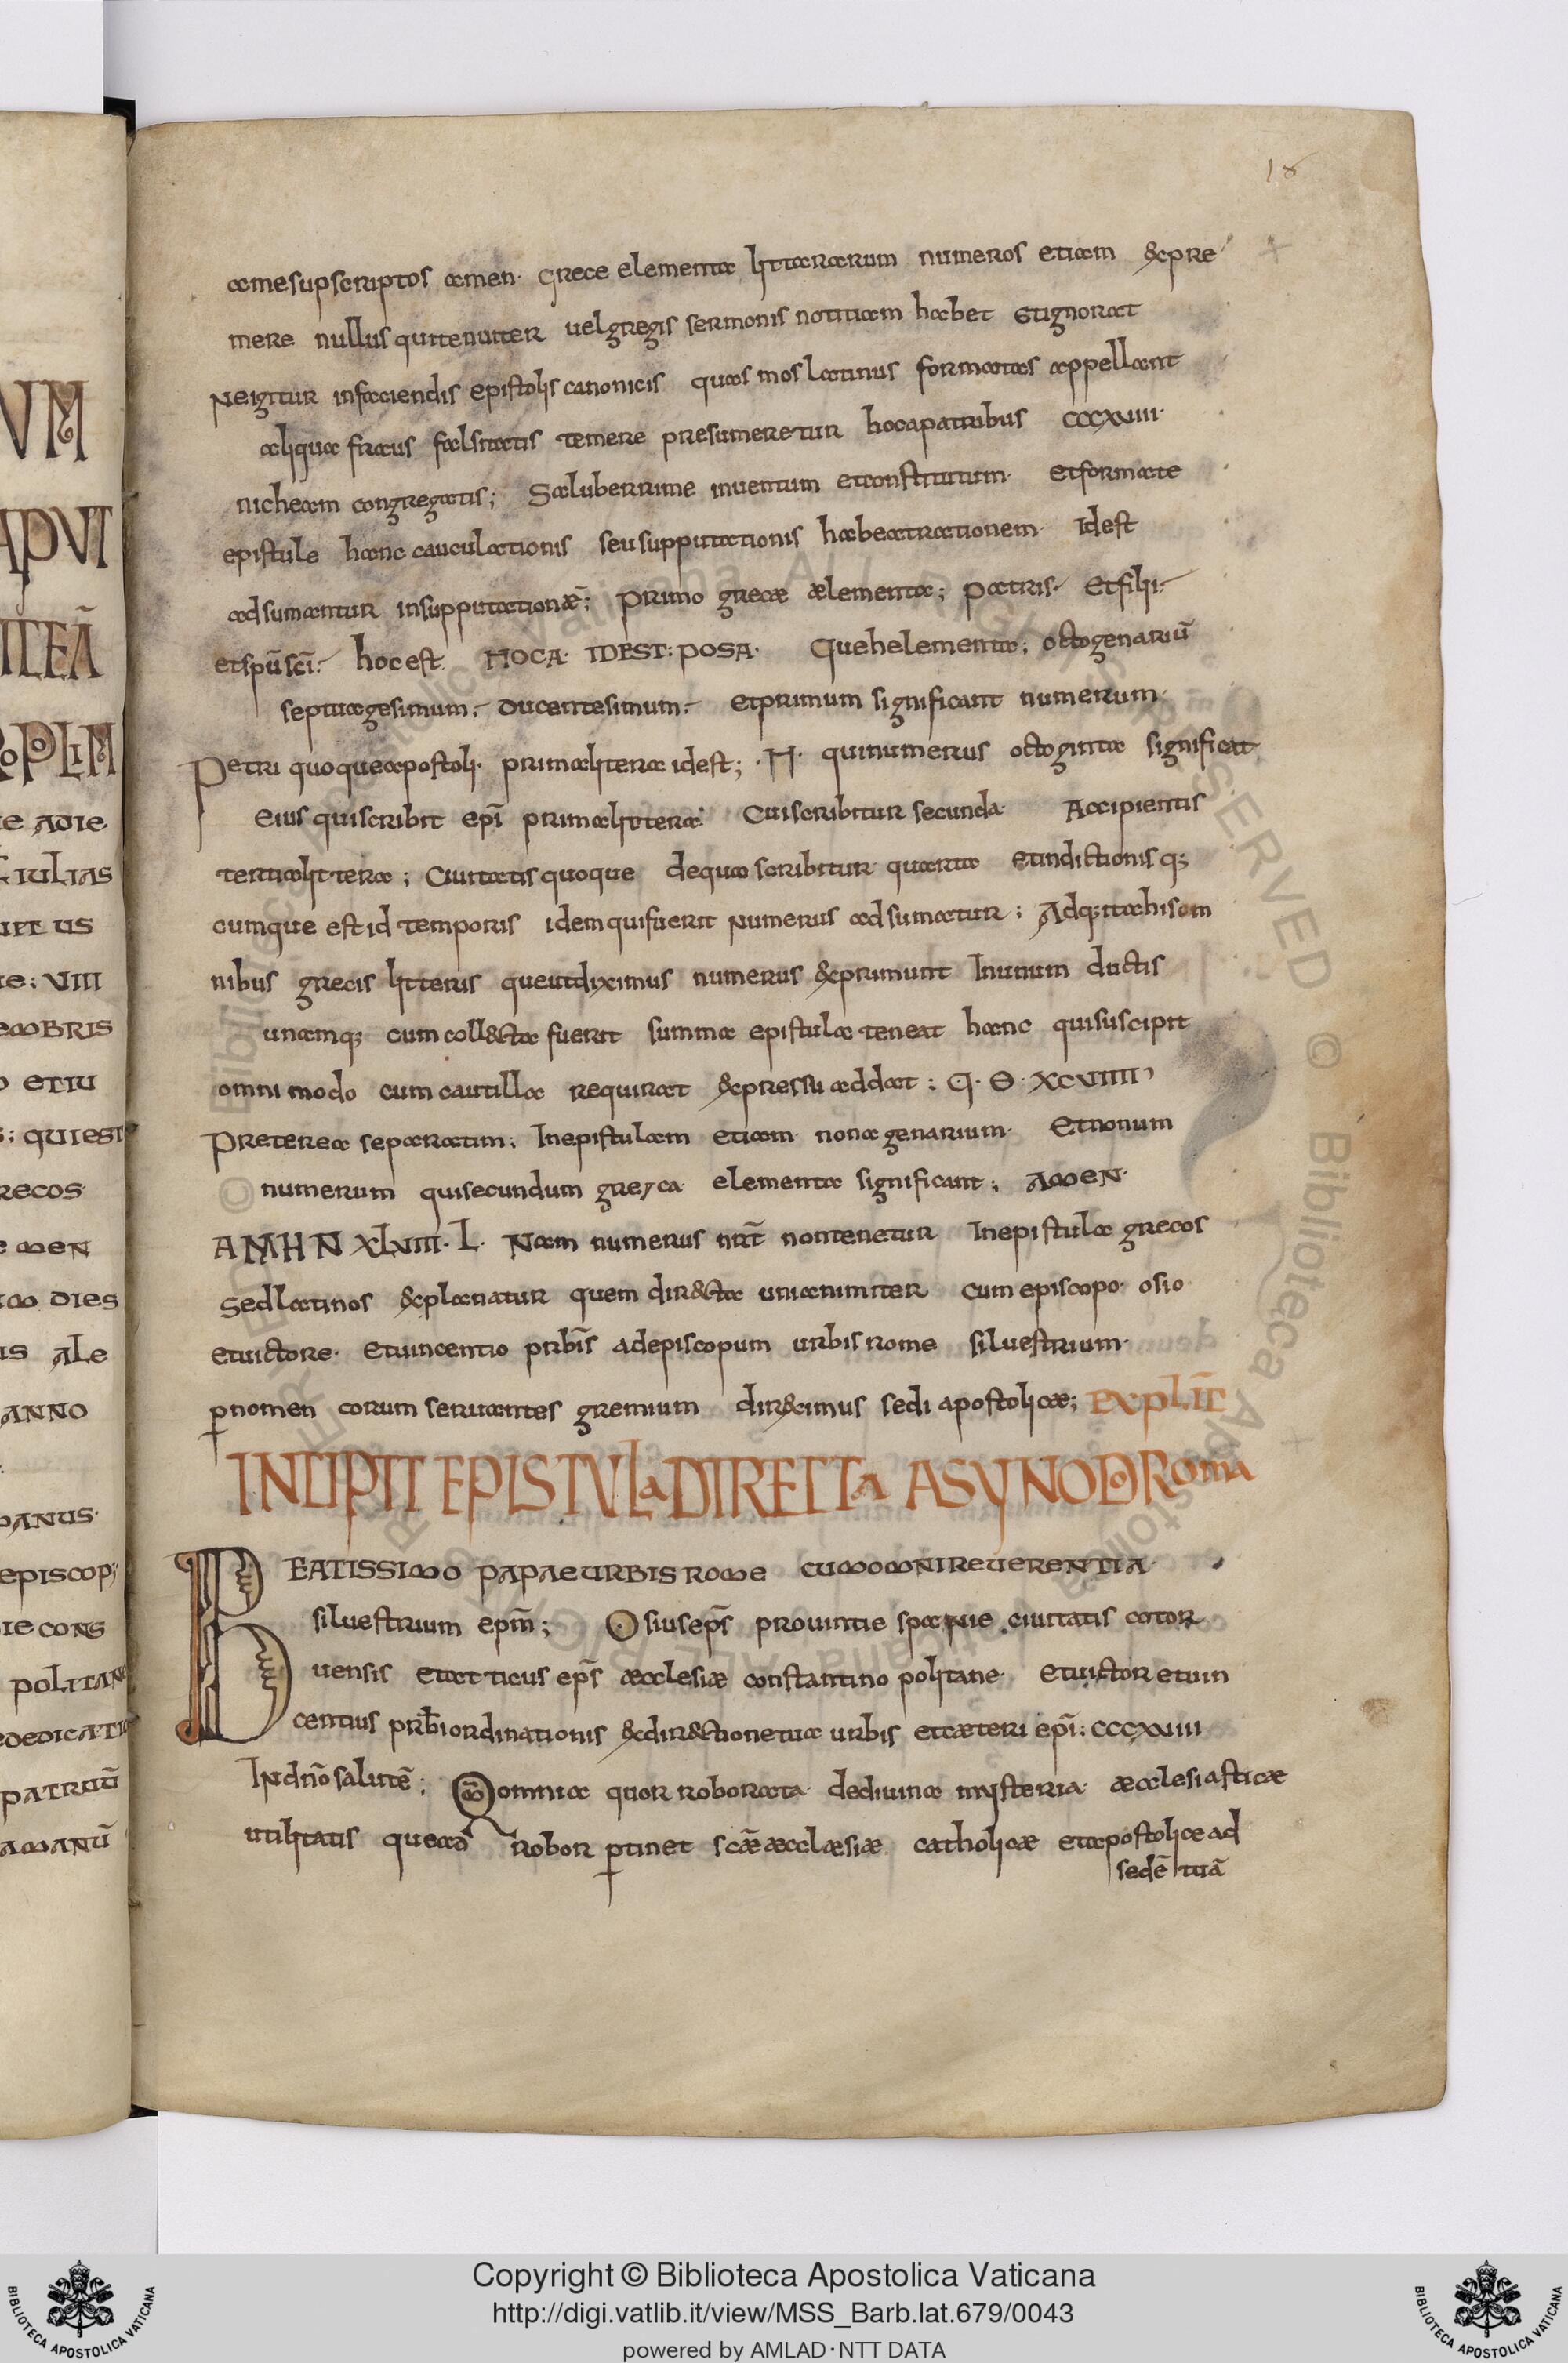 18
amesupscriptos amen· Grece elementa litterarum numeros etiam &pre
mere nullus quitenuiter uelgregis sermonis notitiam habet etignorat
Neigitur infaciendis epistolis canonicis quas mos latinus formatas appellant
aliqua fraus falsitatis temere presumeretur hocapatribus CCCXVIIII·
nicheam congregatis; Saluberrime inuentum etconstitutum· etformate
epistule hanc cauculationis seusupputationis habeatrationem· Idest
adsumantur insupputationæ; primo grecæ ælementa; patris· etfilii·
etspūscī· hoc est ΠOCA· IDEST: POSA· Quehelementa; octogenariū
septuagesimum; ducentesimum; etprimum significant numerum·
Petri quoqueapostoli· primaliterae idest; ·Π· quinumerus octoginta significat
eius quiscribit epī primalittera: Cuiscribitur secunda· Accipientis
tertialittera; Ciuitatis quoque dequa scribitur quarta etindictionis q;
cumque est id temporis idem quifuerit numerus adsumatur; Adq; itahisom
nibus grecis litteris queutdiximus numerus &primunt Inunum ductis
unamq; cum coll&cta fuerit summa epistula teneat hanc quisuscipit
omni modo cum cautilla requirat &pressu addat: Q· Θ· XCVIIII
Preterea separatim; Inepistulam etiam nonagenarium· Etnonum
numerum quisecundum greyca elementa significant; AMEN·
AMHN XLVIII· L· Nam numerus nrt̄ nontenetur Inepistula grecos
sedlatinos &planatur quem dir&cta unianimiter cum episcopo· osio
etuictore· etuincentio prbīs adepiscopum urbis rome siluestrium·
p̱nomen corum seruantes gremium dir&ximus sedi apostolicae; EXPLIT̄
INCIPIT EPISTULa DIRECTa ASYNODO Roma
BEATISSIMO PAPAE URBIS ROME CUMOMNIREUERENTIA·
siluestrium epm̄; Osiusep̄s prouintie spanie ciuitatis cotor
uensis etatticus ep̄s æcclesiæ constantino politane· etuictor etuin
centius prb̄i ordinationis &dir&ctionetua urbis etcæteri epī: CCCXVIIII
Indn̄o salutē; Qm̄ omnia quor roborata· dediuina mysteria· æcclesiasticæ
utilitatis que ad robor p̱tinet scǣ æcclæsiæ catholicæ etapostolice ad
sedē tuā
VM
APVT
ITEĀ
OPLIM
IE ADIE
IULIAS
US
IE: VIII
EMBRIS
ETIU
; QUIEST
RECOS
MEN
DIES
IS ALE
ANNO
PANUS·
EPISCOP;
IE CONS
POLITANE
DEDICATI
PATRUŪ
AMANŪ
Copyright © Biblioteca Apostolica Vaticana
http://digi.vatlib.it/view/MSS_Barb.lat.679/0043
powered by AMLAD·NTT DATA
BIBLIOTECA APOSTOLICA VATICANA
BIBLIOTECA APOSTOLICA VATICANA